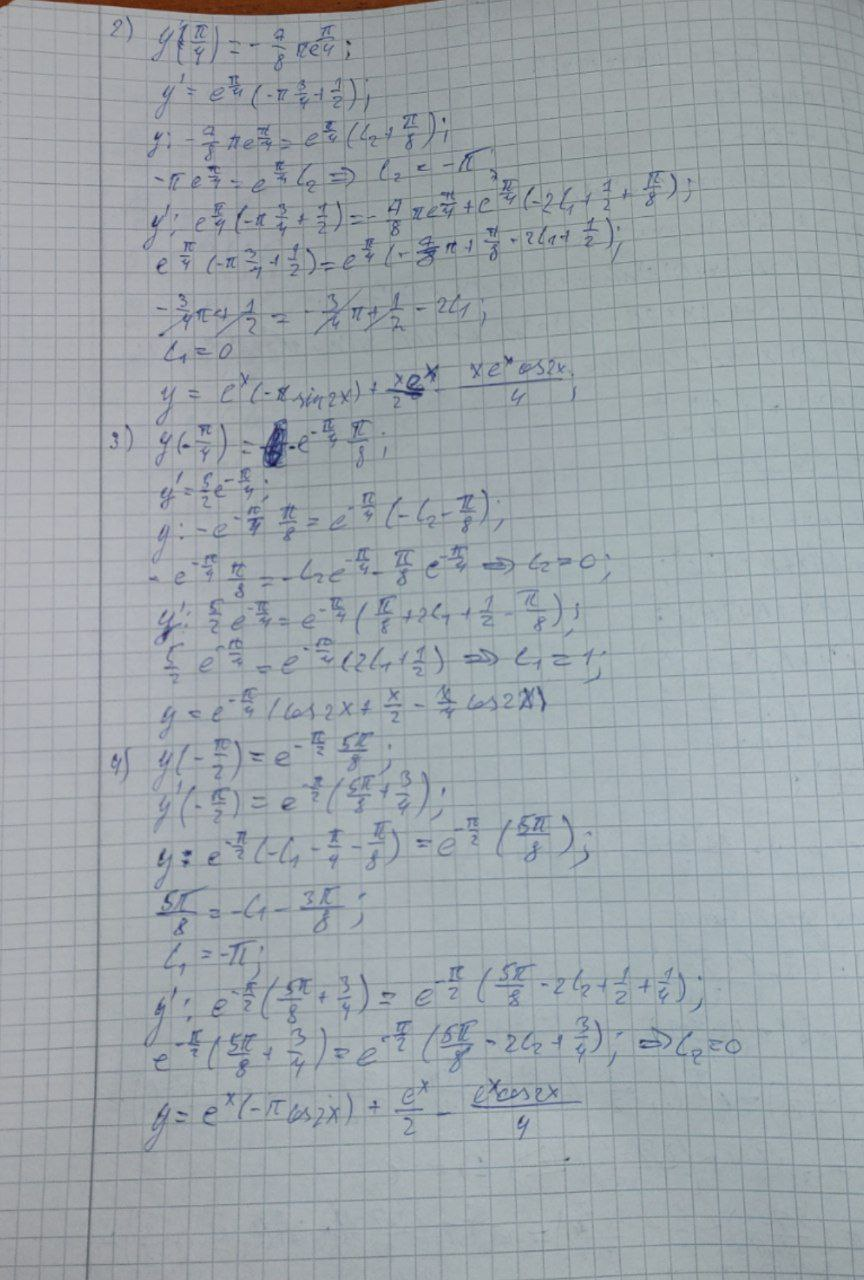 2) y(π/4) = -7/8 πe^{π/4};
y' = e^{π/4}(-π 3/4 + 1/2);
y: -7/8 πe^{π/4} = e^{π/4}(C₂ + π/8);
-πe^{π/4} = e^{π/4}C₂ ⇒ C₂ = -π;
y': e^{π/4}(-π 3/4 + 1/2) = -7/8 πe^{π/4} + e^{π/4}(-2C₁ + 1/2 + π/8);
e^{π/4}(-π 3/4 + 1/2) = e^{π/4}(-7/8 π + π/8 - 2C₁ + 1/2);
-3/4 π + 1/2 = -3/4 π + 1/2 - 2C₁;
C₁ = 0
y = e^x(-π sin2x) + xe^x/2 - xe^x cos2x/4;
3) y(-π/4) = -e^{-π/4} π/8;
y' = 5/2 e^{-π/4};
y: -e^{-π/4} π/8 = e^{-π/4}(-C₂ - π/8);
-e^{-π/4} π/8 = -C₂e^{-π/4} - π/8 e^{-π/4} ⇒ C₂ = 0;
y': 5/2 e^{-π/4} = e^{-π/4}(π/8 + 2C₁ + 1/2 - π/8);
5/2 e^{-π/4} = e^{-π/4}(2C₁ + 1/2) ⇒ C₁ = 1;
y = e^{-π/4}(cos2x + x/2 - x/4 cos2x)
4) y(-π/2) = e^{-π/2} 5π/8;
y'(-π/2) = e^{-π/2}(5π/8 + 3/4);
y: e^{-π/2}(-C₁ - π/4 - π/8) = e^{-π/2}(5π/8);
5π/8 = -C₁ - 3π/8;
C₁ = -π;
y': e^{-π/2}(5π/8 + 3/4) = e^{-π/2}(5π/8 - 2C₂ + 1/2 + 1/4);
e^{-π/2}(5π/8 + 3/4) = e^{-π/2}(5π/8 - 2C₂ + 3/4); ⇒ C₂ = 0
y = e^x(-π cos2x) + e^x/2 - e^x cos2x/4